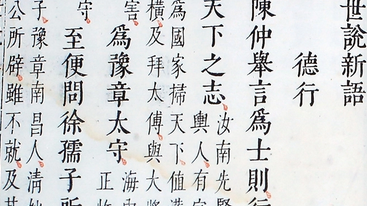 世說新語
德行
陳仲舉言為士則行
天下之志 汝南先賢
輿人有室
為國家掃天下值漢
橫及拜太傅與大將
害 為豫章太守 海內
正忤
守 至便問徐孺子所
子豫章南昌人清妙
公所辟雖不就及其